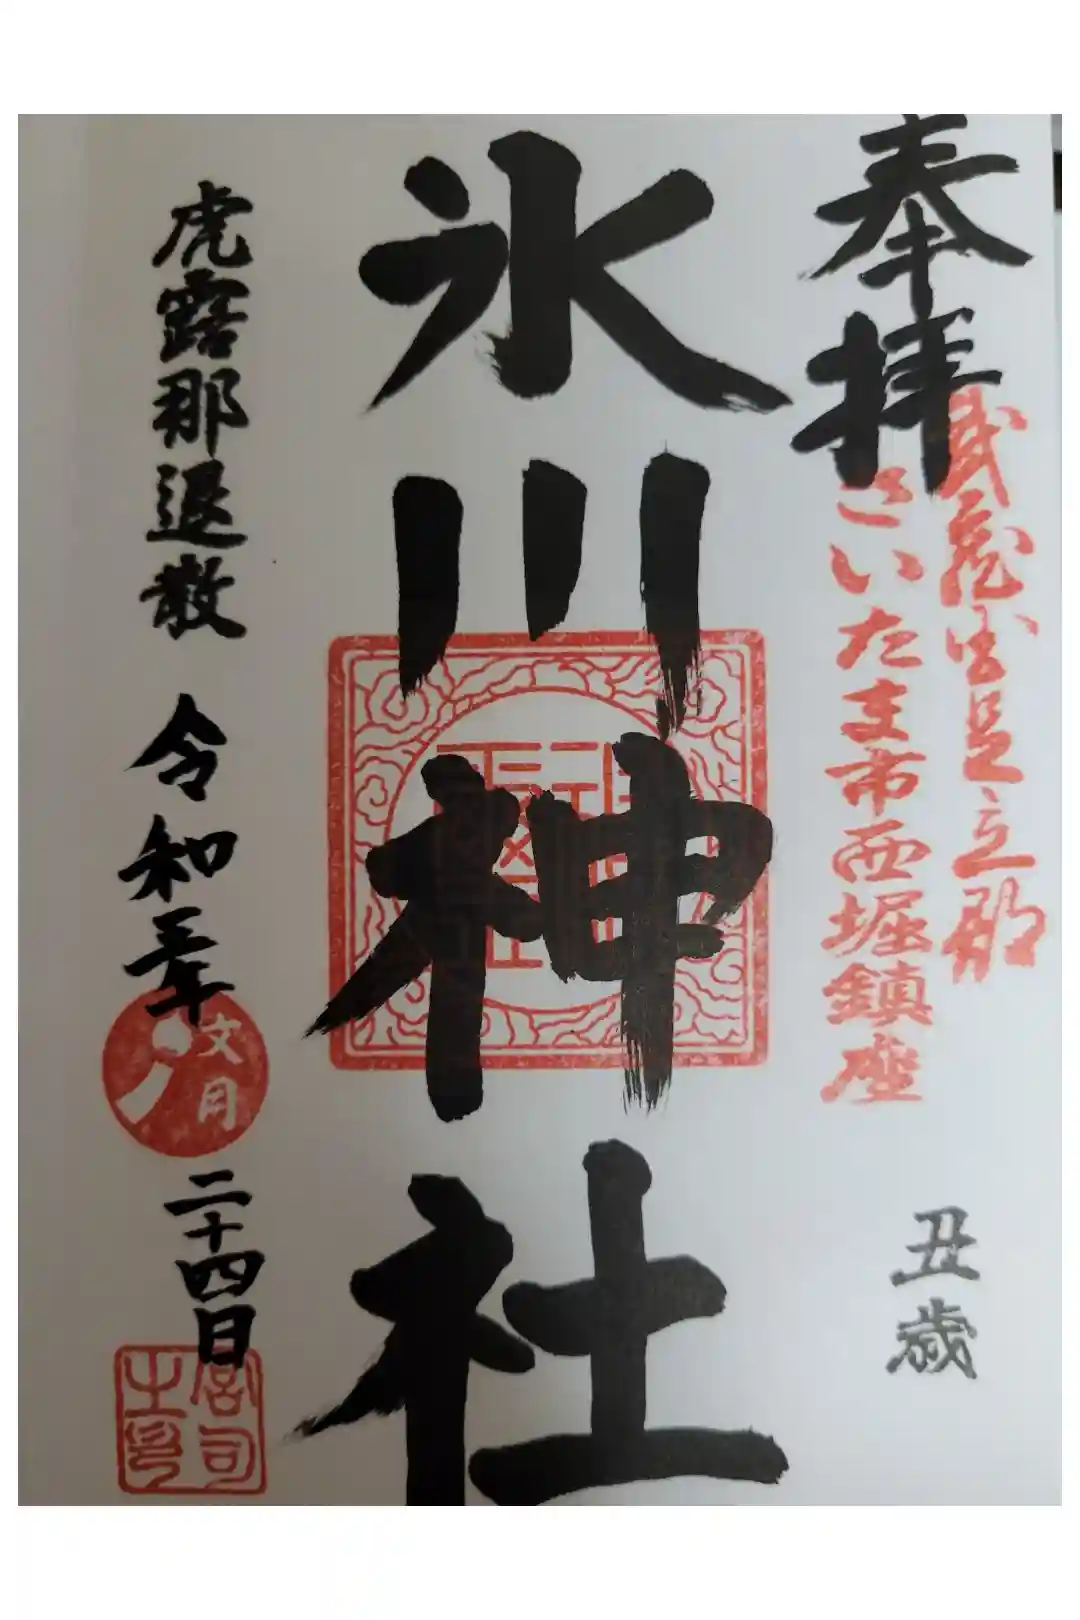 奉拝
武蔵国足立郡
さいたま市西堀鎮座
丑歳
氷川神社
虎露那退散 令和三年
文月
二十四日
宮司
之印